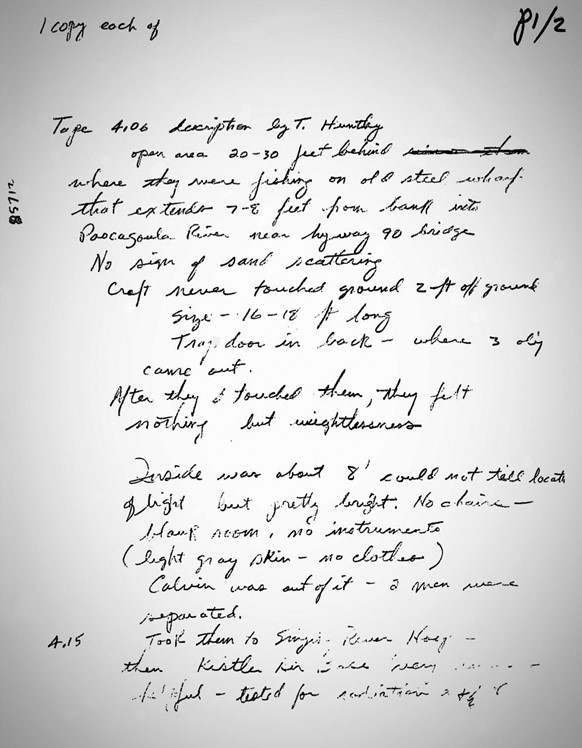 1 copy each of
81/2
Tape 4.06 description by T. Huntley
open area 20-30 feet behind
where they were fishing on old steel wharf
that extends 7-8 feet from bank into
Pascagoula River near hyway 90 bridge
No sign of sand scattering
Craft never touched ground 2-ft off ground
Size - 16-18 ft long
Trap door in back - where 3 obj
came out.
After they touched them, they felt
nothing but weightlessness
Inside was about 8' could not tell locatn
of light but pretty bright. No chairs -
blank room, no instruments
(light gray skin - no clothes)
Calvin was out of it - 2 men were
separated.
4.15 Took them to Singing River Hosp -
then very
- tested for radiation